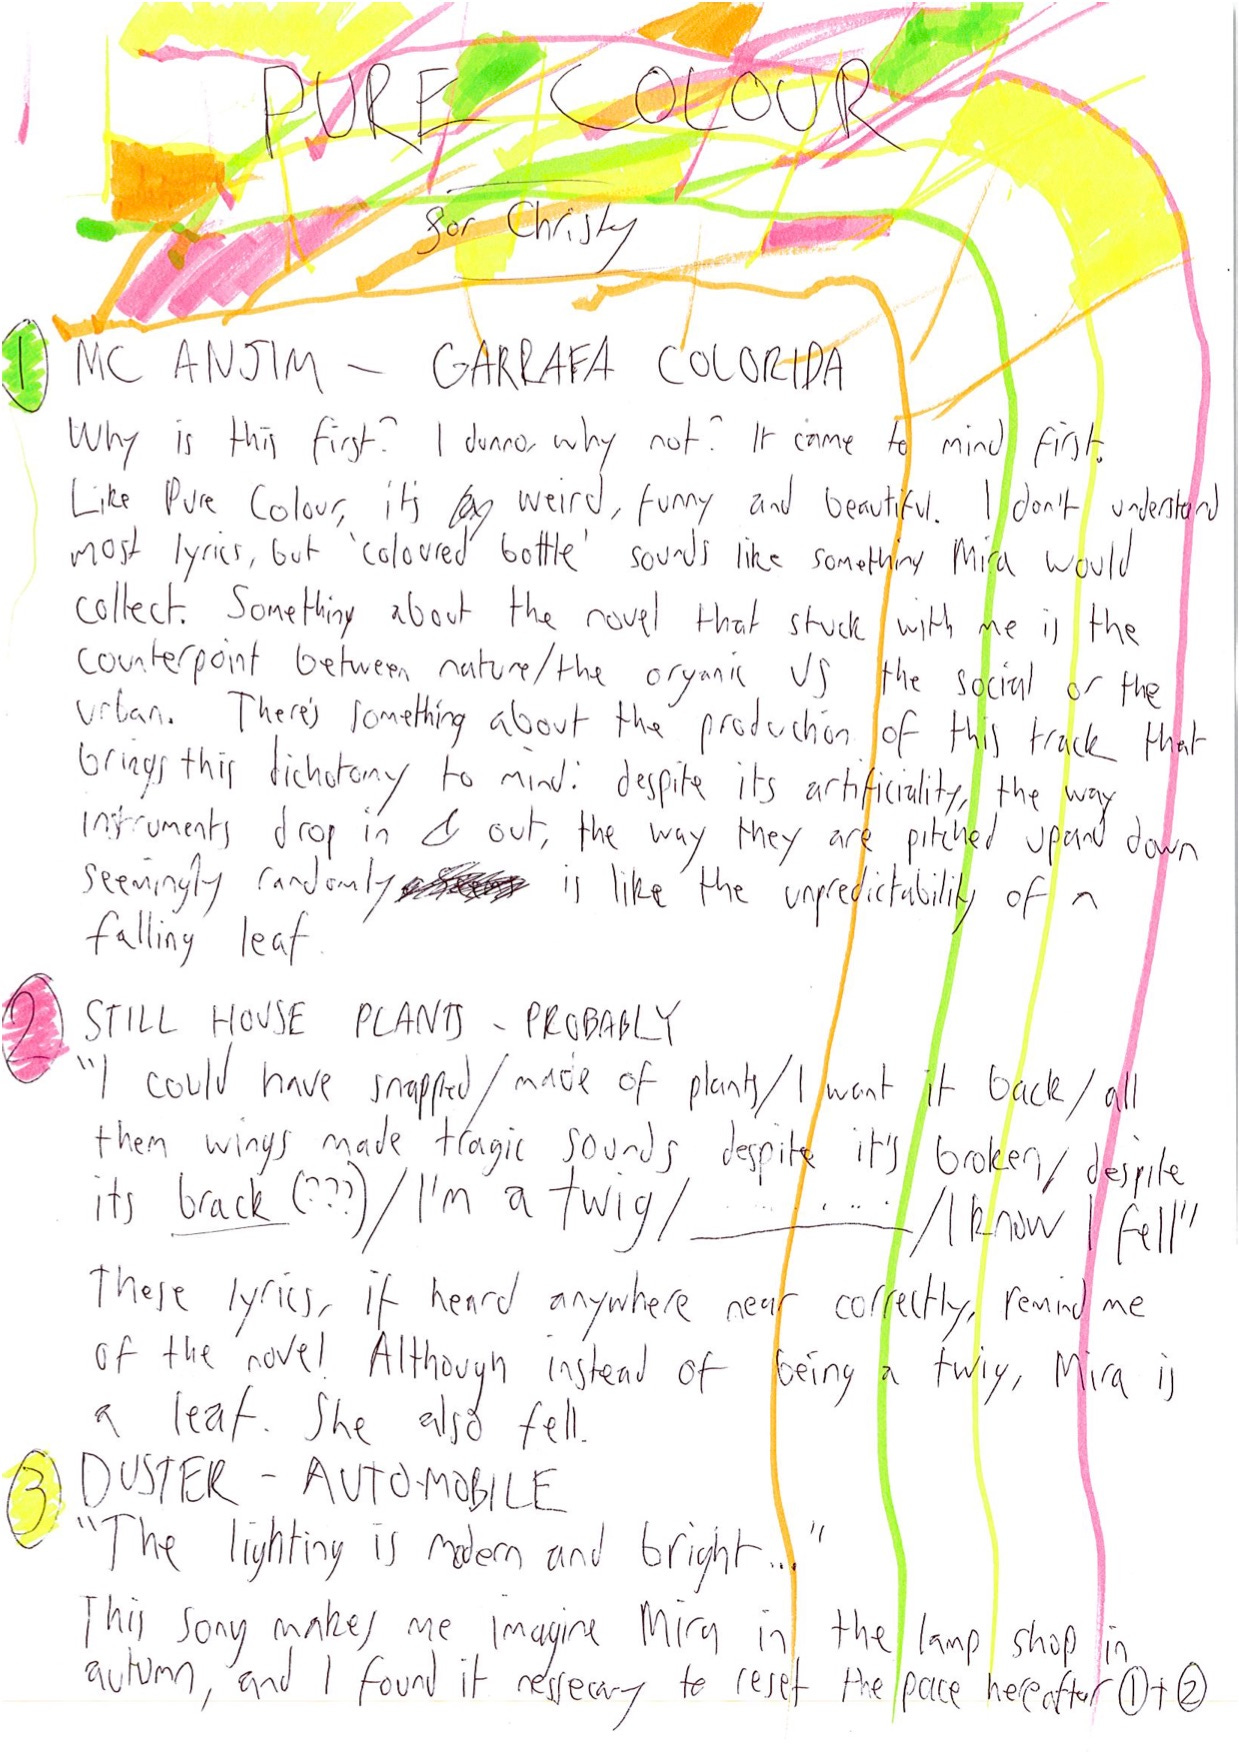 PURE COLOUR
for Christy
1 MC ANJIM - GARRAFA COLORIDA
Why is this first? I dunno, why not? It came to mind first.
Like Pure Colour, it's weird, funny and beautiful. I don't understand
most lyrics, but 'coloured bottle' sounds like something Mira would
collect. Something about the novel that stuck with me is the
counterpoint between nature/the organic VS the social or the
urban. There's something about the production of this track that
brings this dichotomy to mind: despite its artificiality, the way
instruments drop in & out, the way they are pitched up and down
seemingly randomly is like the unpredictability of a
falling leaf.
2 STILL HOUSE PLANTS - PROBABLY
"I could have snapped/made of plants/I want it back/all
them wings made tragic sounds despite it's broken/despite
its brack (???)/I'm a twig/ ........ /I know I fell"
These lyrics, if heard anywhere near correctly, remind me
of the novel. Although instead of being a twig, Mira is
a leaf. She also fell.
3 DUSTER - AUTO-MOBILE
"The lighting is modern and bright..."
This song makes me imagine Mira in the lamp shop in
autumn, and I found it nessecary to reset the pace here after 1 + 2